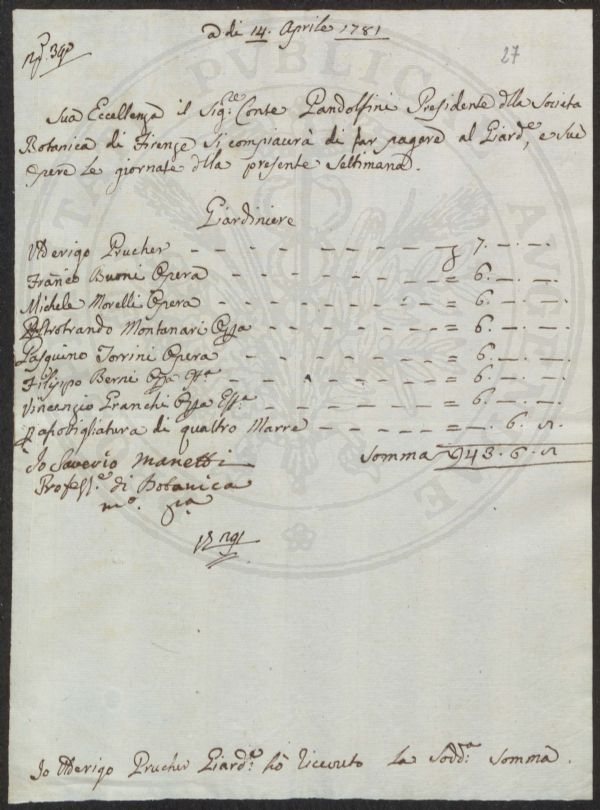 A di 14. Aprile 1781
N.º 390
27
Sua Eccellenza il Sig.re Conte Pandolfini Presidente dlla Società
Botanica di Firenze si compiacerà di far pagare al Giard.e, e sue
Opere le giornate dlla presente Settimana.
Giardiniere
Uderigo Prucher — 7. — . —
Franco Buoni Opera — = 6. — . —
Michele Morelli Opera — = 6. — . —
Montanari — = 6. — . —
Pasquino Torrini Opera — = 6. — . —
Filippo Berni — = 6. — . —
Vincenzio Franchi — = 6. — . —
di quattro Marre — = — . 6. 8.
Somma 43. 6. 8
Io Saverio Manetti
Profess.e di Botanica
m.o p.a
Io Uderigo Prucher Giard.e hò riceuto la Sodd.a Somma.
PUBLICAE
AUGENDAE